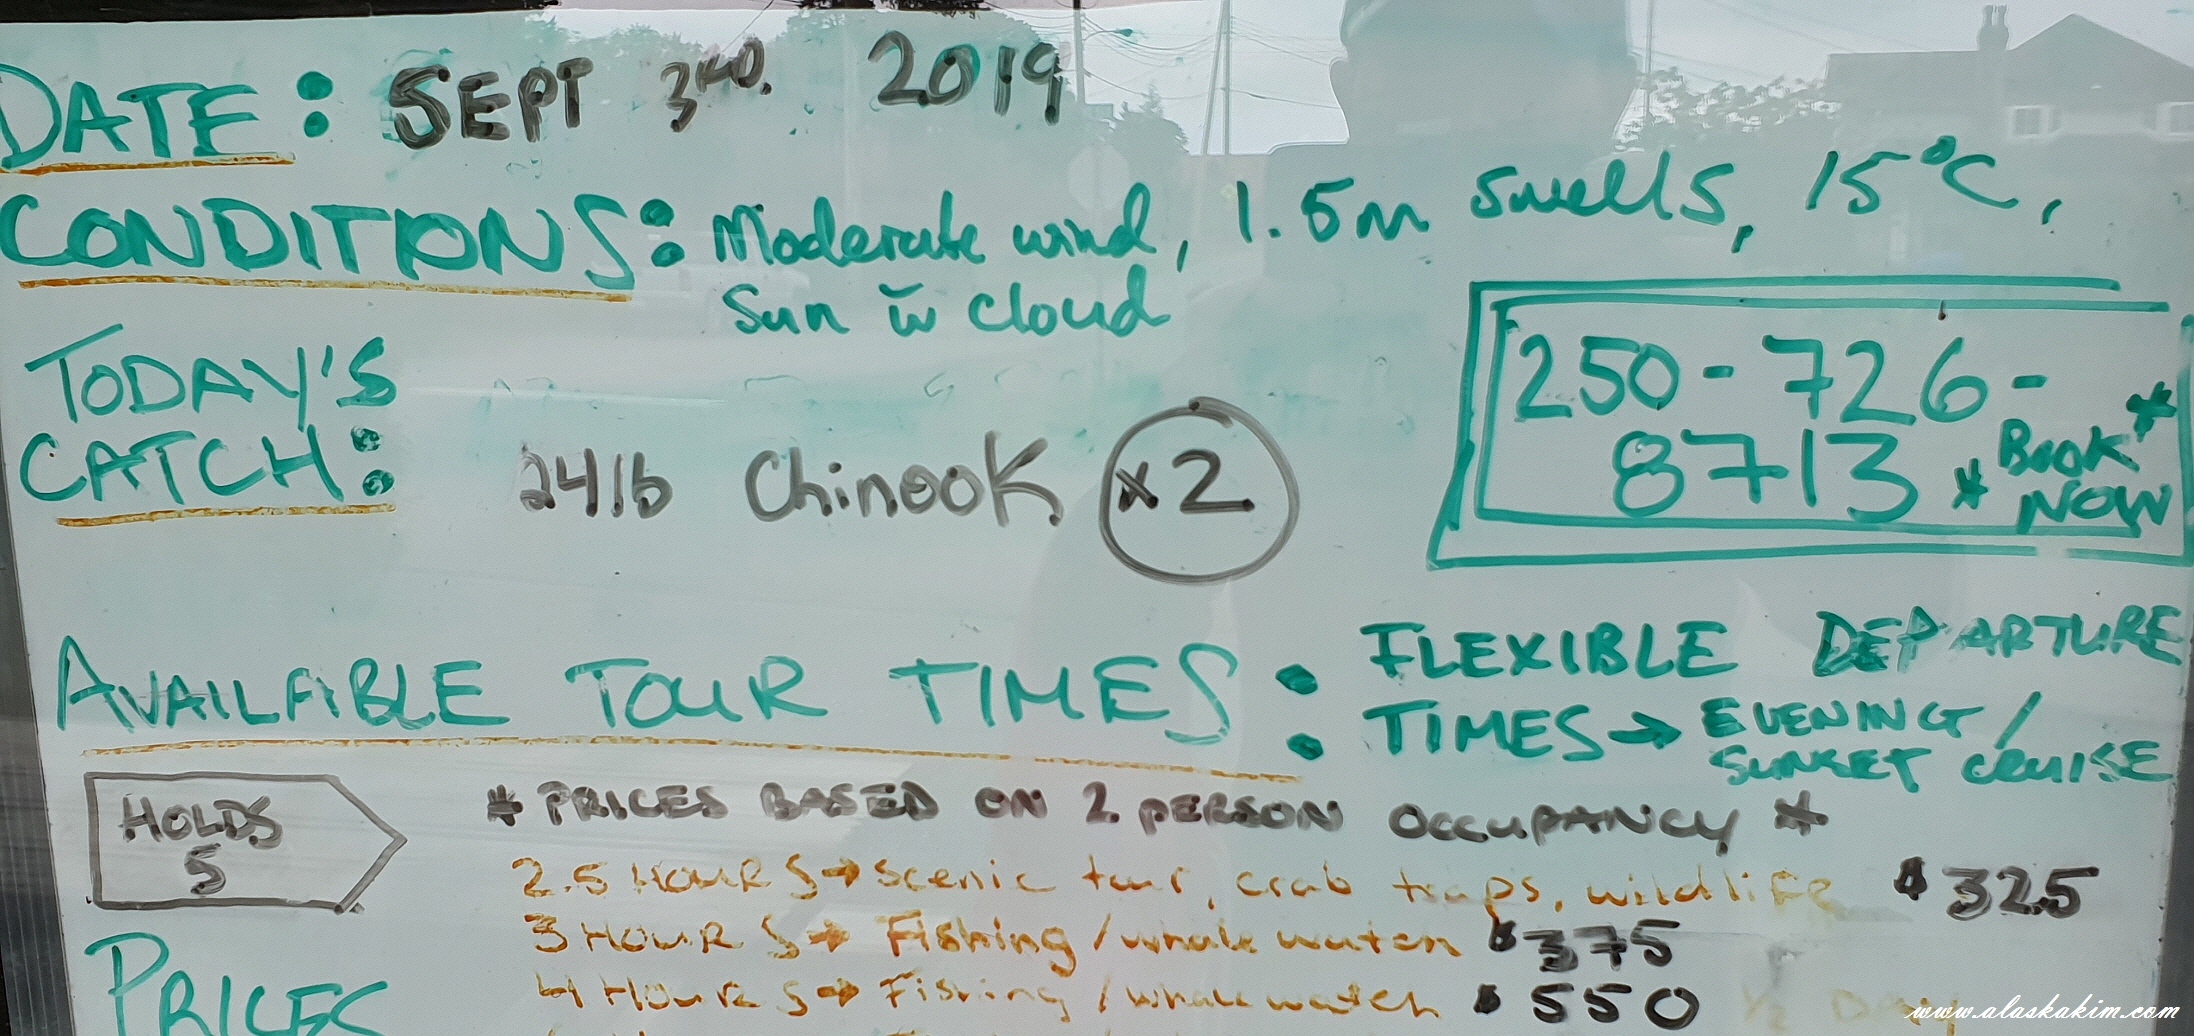 DATE: SEPT 3RD. 2019
CONDITIONS: Moderate wind, 1.5m swells, 15°C,
Sun w cloud
TODAY'S
CATCH: 24lb Chinook x2
250-726-
8713 * BOOK *
NOW
AVAILABLE TOUR TIMES: FLEXIBLE DEPARTURE
TIMES → EVENING /
SUNSET CRUISE
HOLDS
5
* PRICES BASED ON 2 PERSON OCCUPANCY *
2.5 HOURS → scenic tour, crab traps, wildlife $325
3 HOURS → Fishing / whale watch $375
4 HOURS → Fishing / whale watch $550 1/2 Day
PRICES
www.alaskakim.com